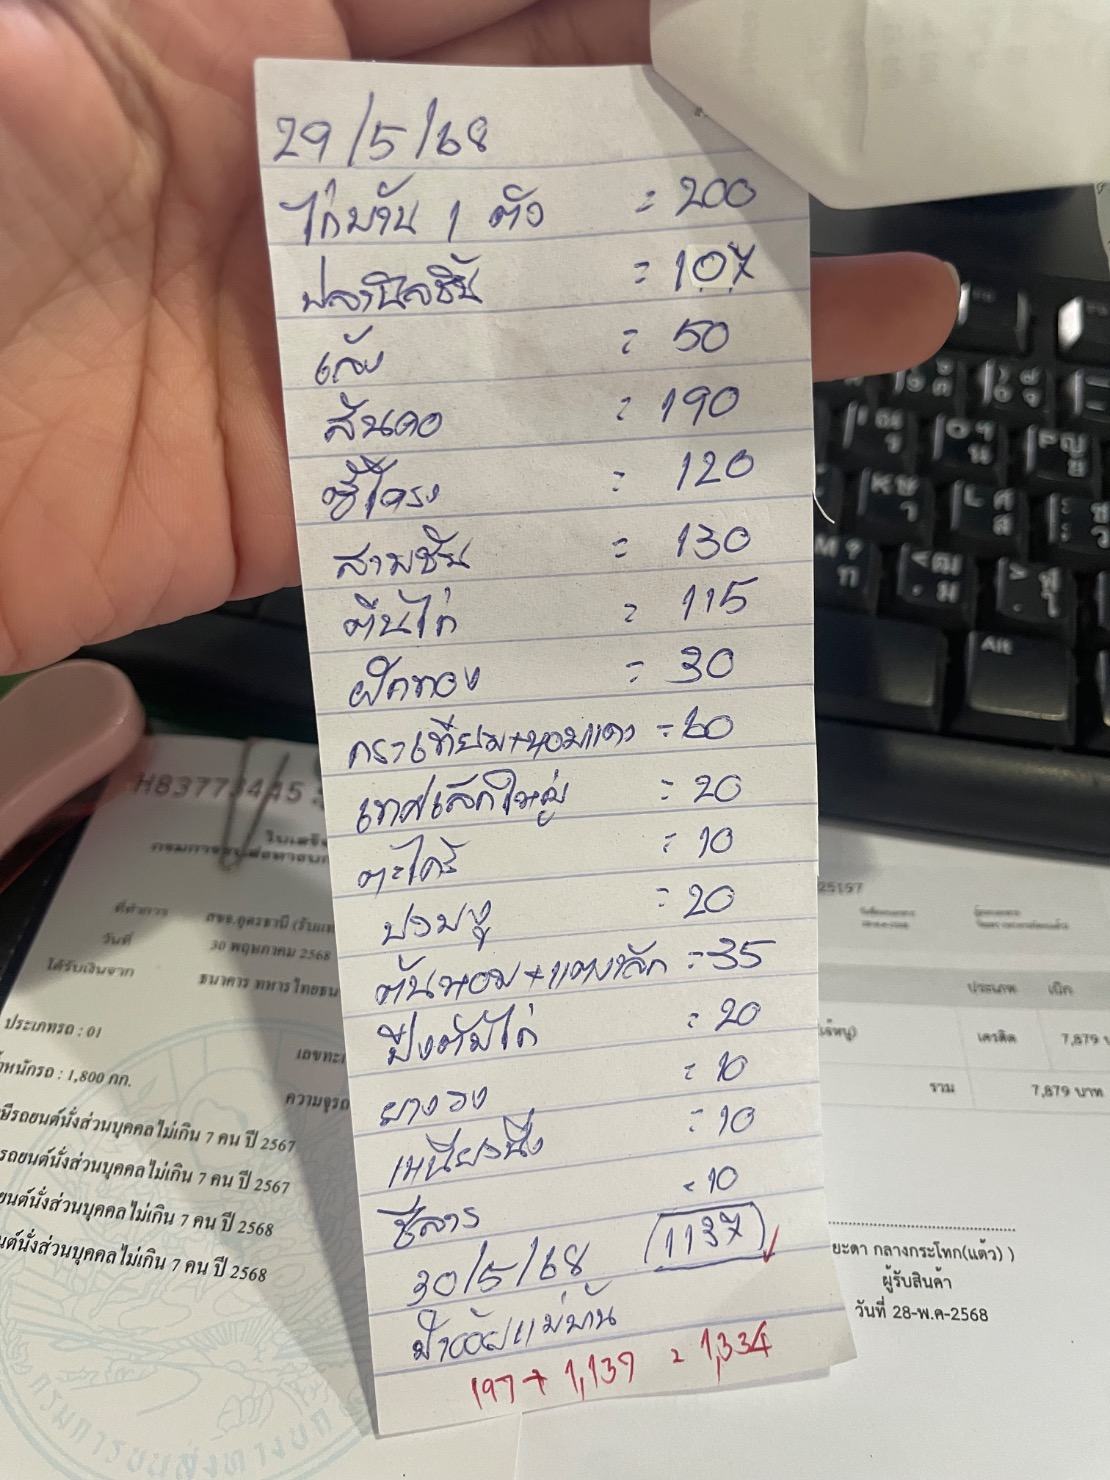 29/5/68
ไก่บ้าน 1 ตัว = 200
ปลานิลชิ้น = 107
เล้ง = 50
สันคอ = 190
ซี่โครง = 120
สามชั้น = 130
ตีนไก่ = 115
ฝักทอง = 30
กระเทียม+หอมแดง = 60
เทศเล็กใหญ่ = 20
ตะไคร้ = 10
บวบงู = 20
ต้นหอม+แตงหลัก = 35
ปีงตับไก่ = 20
ยางวง = 10
เหนียวนึ่ง = 10
ชีลาว = 10
1137
30/5/68
ป้าอ้อยแม่บ้าน
197 + 1,137 = 1,334
H83773445
ใบเสร็จ
กรมการขนส่งทางบก
ที่ทำการ สขจ.อุดรธานี
วันที่ 30 พฤษภาคม 2568
ได้รับเงินจาก ธนาคาร ทหารไทยธน
ประเภทรถ : 01
เลขทะเ
น้ำหนักรถ : 1,800 กก.
ความจุรถ
ษีรถยนต์นั่งส่วนบุคคลไม่เกิน 7 คน ปี 2567
รถยนต์นั่งส่วนบุคคลไม่เกิน 7 คน ปี 2567
ยนต์นั่งส่วนบุคคลไม่เกิน 7 คน ปี 2568
นต์นั่งส่วนบุคคลไม่เกิน 7 คน ปี 2568
กรมการขนส่งทางบก
25197
ประเภท เบิก
เครดิต 7,879 บ
รวม 7,879 บาท
ยะดา กลางกระโทก(แต้ว) )
ผู้รับสินค้า
วันที่ 28-พ.ค-2568
Alt